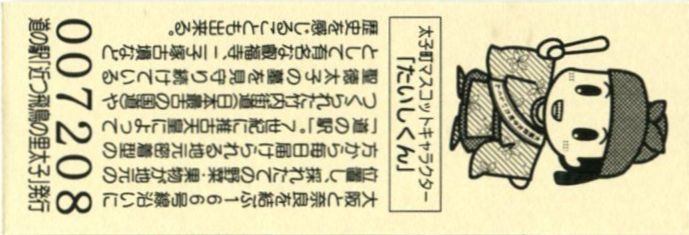 太子町マスコットキャラクター
「たいしくん」
大阪と奈良を結ぶ166号線沿いに
位置し、採れたての野菜・果物が地元の
方から毎日届けられる地元密着型の
「道の駅」。7世紀に推古天皇によって
つくられた竹内街道(日本最古の国道)や
聖徳太子の墓を見守り続けている
として有名な叡福寺、二子塚古墳など
歴史を感じることも出来る。
007208
道の駅「近つ飛鳥の里太子」発行